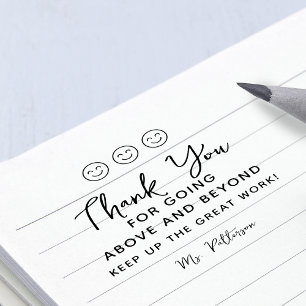 Thank You
FOR GOING
ABOVE AND BEYOND
KEEP UP THE GREAT WORK!
Ms. Patterson